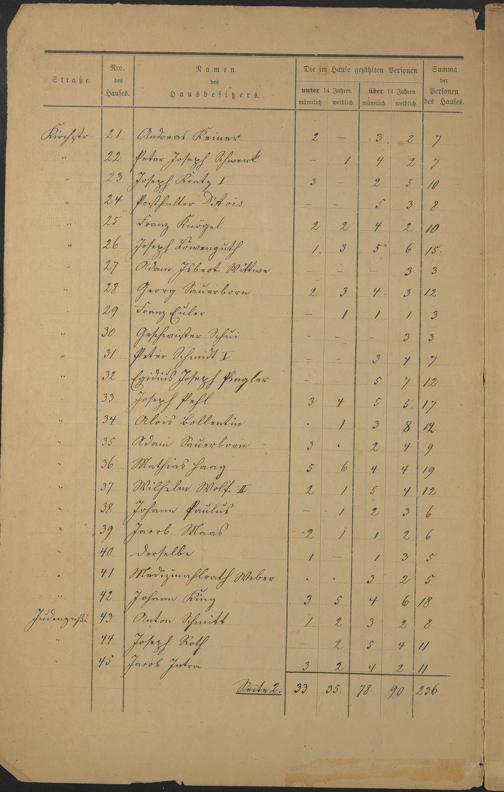 Straße. Nro. des Hauses. Namen des Hausbesitzers. Die im Hause gezählten Personen Summa der Personen des Hauses.
unter 14 Jahren über 14 Jahren
männlich weiblich männlich weiblich
Kirchstr. 21 Andreas Keiner 2 – 3 2 7
" 22 Peter Joseph Schwenk – 1 4 2 7
" 23 Joseph Krätz I 3 – 2 5 10
" 24 Posthalter – – 5 3 8
" 25 Franz Knögel 2 2 4 2 10
" 26 Joseph Löwenguth 1 3 5 6 15
" 27 Adam Isbert Wittwe – – – 3 3
" 28 Georg Sauerborn 2 3 4 3 12
" 29 Franz Euler – 1 1 1 3
" 30 Geschwister – – – 3 3
" 31 Peter Schmidt I – – 3 4 7
" 32 Egidius Joseph – – 5 7 12
" 33 Joseph Pehl 3 4 5 5 17
" 34 Alois Bollentin . 1 3 8 12
" 35 Adam Sauerborn 3 . 2 4 9
" 36 Mathias Haag 5 6 4 4 19
" 37 Wilhelm Wolf II 2 1 5 4 12
" 38 Johann Paulus – 1 2 3 6
" 39 Jacob Maas 2 1 1 2 6
" 40 derselbe 1 – 1 3 5
" 41 Medizinalrath Weber . . 3 2 5
" 42 Johann King 3 5 4 6 18
43 Anton Schmitt 1 2 3 2 8
" 44 Joseph Roth – 2 5 4 11
" 45 Jacob 3 2 4 2 11
Seite 2. 33 35 78 90 236